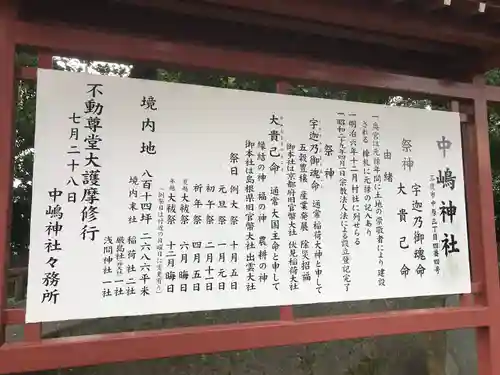 中嶋神社
祭神
宇迦乃御魂命
大貴己命
由緒
一、当宮は元禄年間に土地の崇敬者により建設
され、棟札に元禄の記入あり
一、明治六年十二月村社に列せらる
一、昭和二十九年四月二日宗教法人法による設立登記完了
祭神
宇迦乃御魂命 通常 稲荷大神と申して
五穀豊穣 産業発展 除災招福
御本社は京都府旧官幣大社 伏見稲荷大社
大貴己命 通常 大国主命と申して
縁結の神 福の神 農耕の神
御本社は島根県旧官幣大社 出雲大社
祭日
例大祭 十月五日
元旦祭 一月元日
初午祭 二月十一日
祈年祭 四月五日
夏越大祓祭 六月晦日
年越大祓祭 十二月晦日
境内地 八百十四坪 二六八六平米
境内末社 稲荷社 二社
厳島社 一社
浅間神社 一社
不動尊堂大護摩修行
七月二十八日
中嶋神社々務所